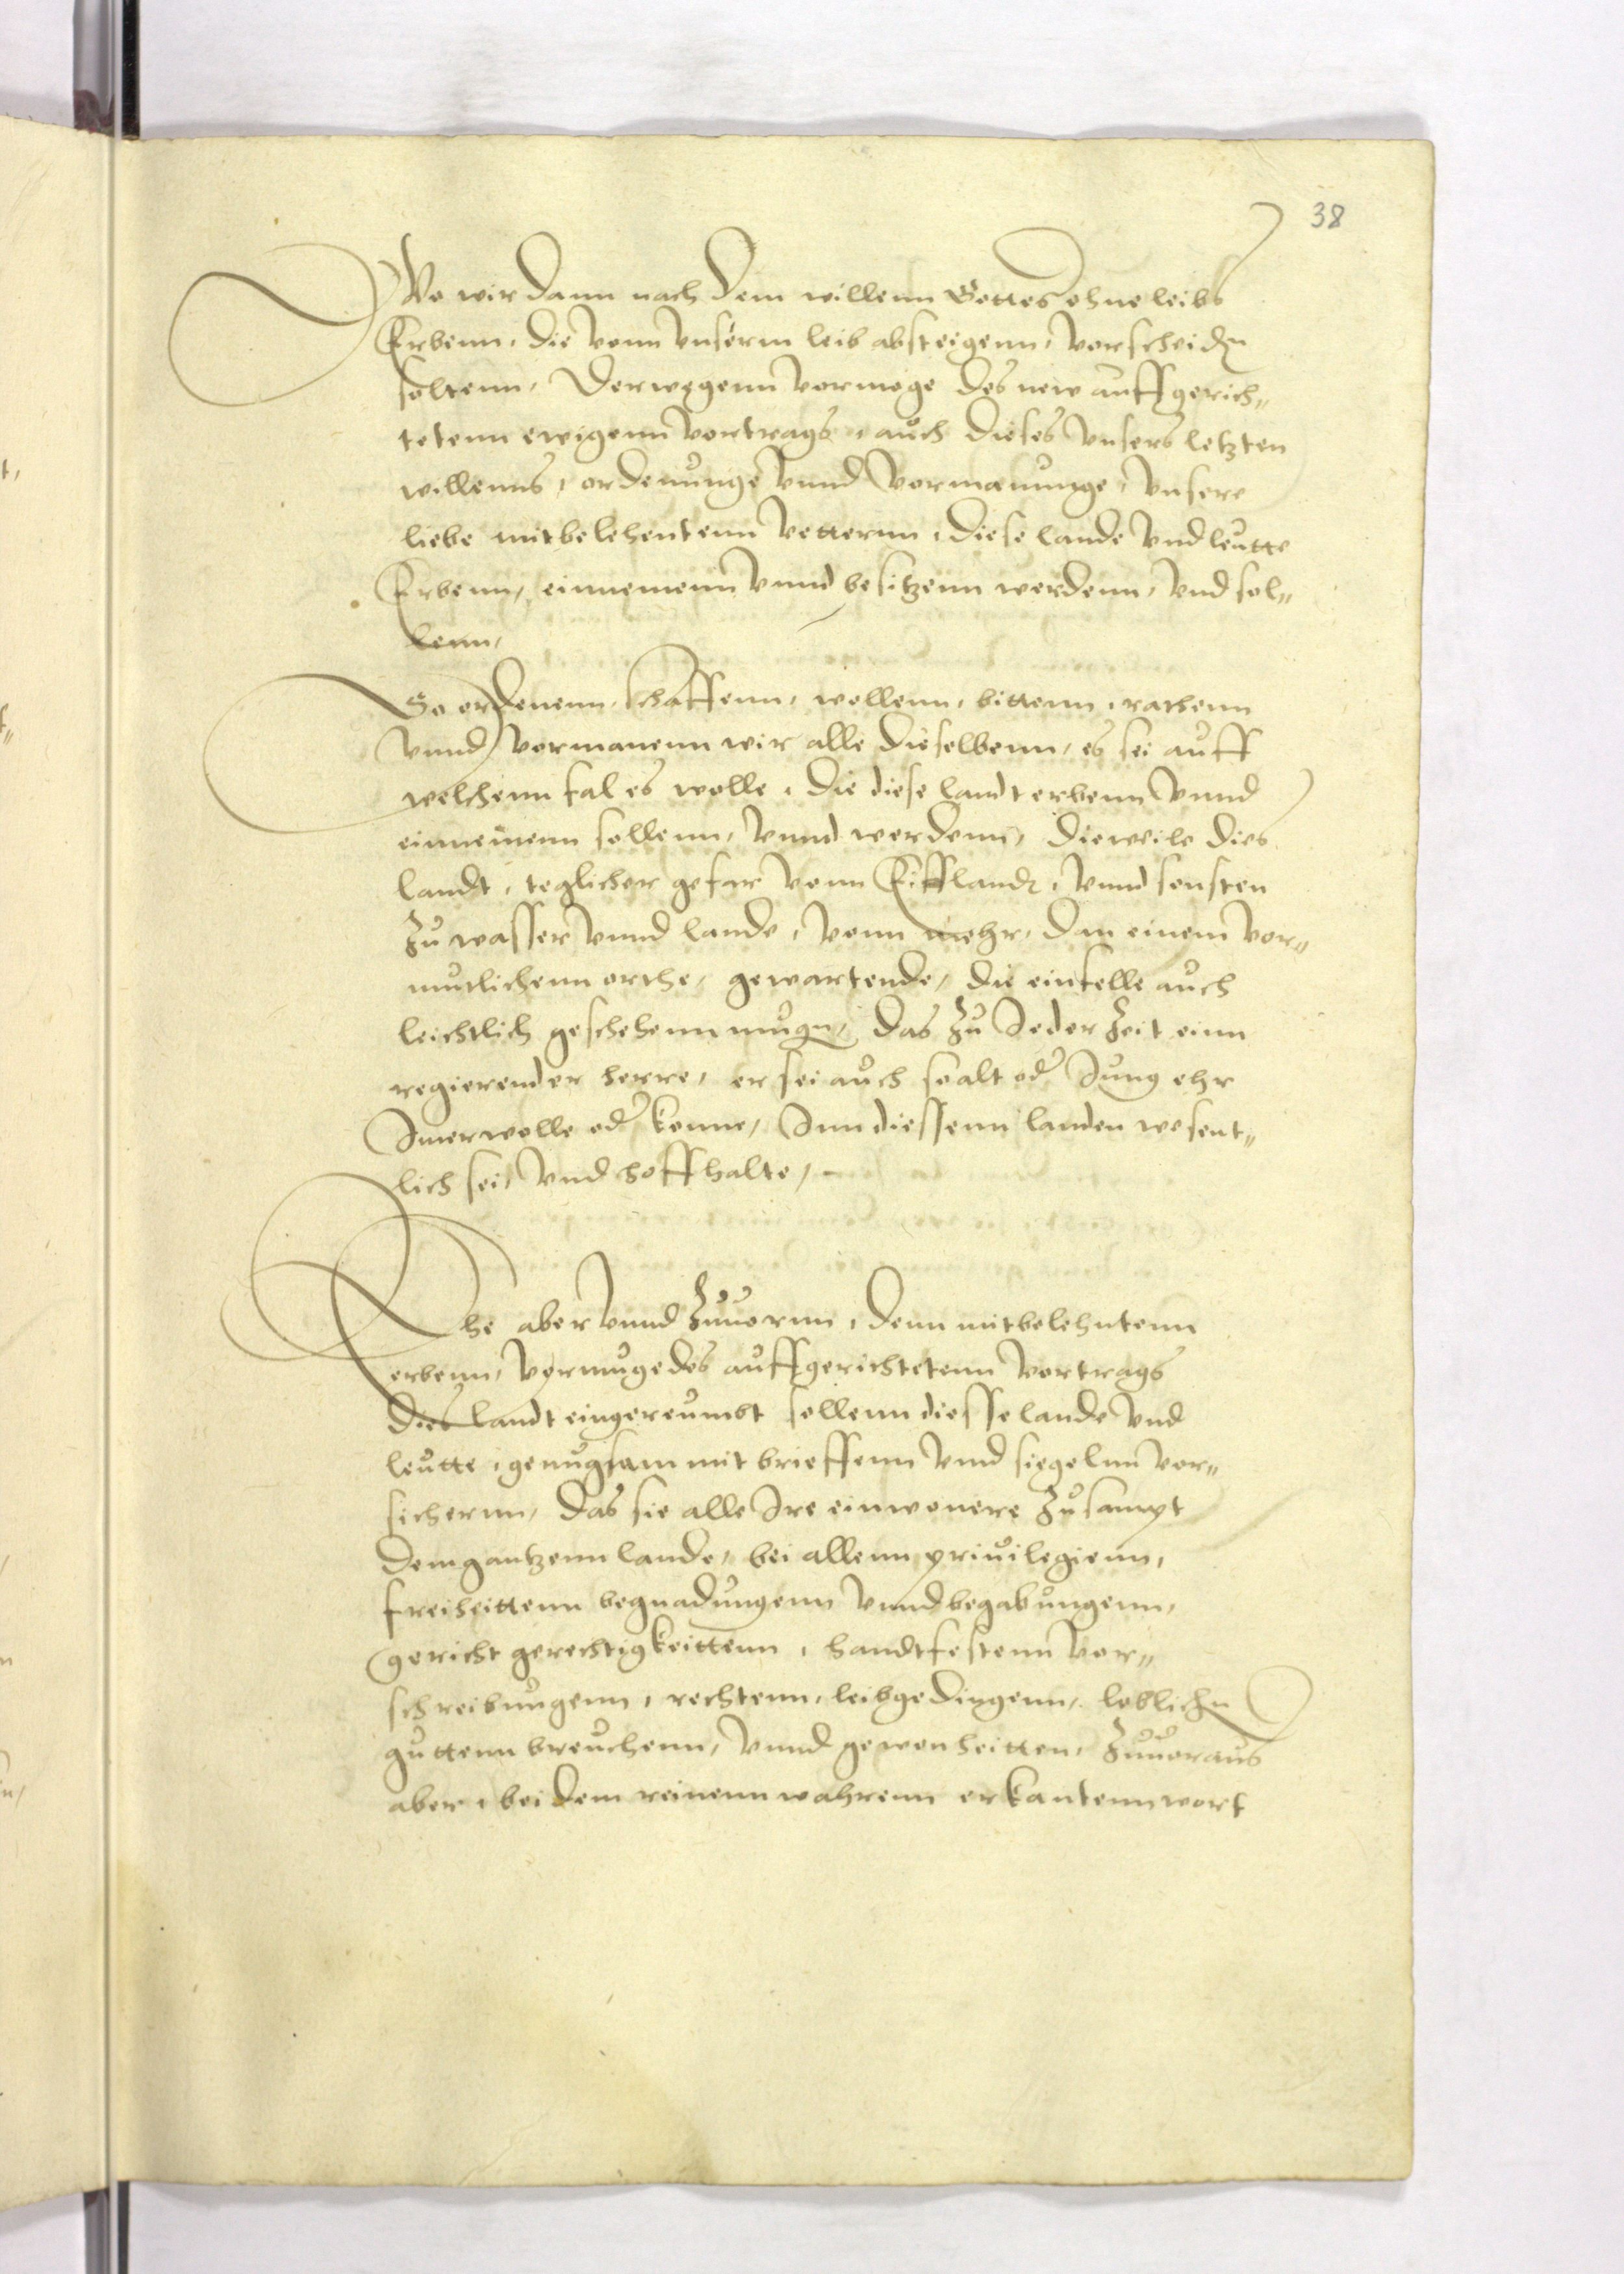 38
Wo wir dann nach dem willenn Gottes ohne leibs
Erbenn, die vonn vnserm leib absteigenn, vorscheiden
soltenn, Derwegenn vormoge des new auffgerich„
tetenn ewigenn vortrags, auch dieses vnsers letzten
willenns, ordenunge vnnd vormanunge, vnsere
liebe mitbelehentenn vetternn, diese lande vnd leutte
Erbenn, einnemenn vnnd besitzenn werdenn, vnd sol„
lenn,
So ordenenn, schaffenn, wollenn, bittenn, rathenn
vnnd vormanenn wir alle dieselbenn, es sei auff
welchenn fal es wolle, die diese landt erbenn vnnd
einnemenn sollenn, vnnd werdenn, dieweile dies
landt, teglicher gefar vonn Eifflandt, vnnd sonsten
zu wasser vnnd lande, vonn mehr, dan einem vor„
mutlichenn orthe, gewartende, die einfelle auch
leichtlich geschehenn mugen, das zu Jeder zeit einn
regierender herre, er sei auch so alt oder Jung ehr
Jmer wolle oder konne, Jnn diessenn landen wesent„
lich sei, vnd hoff halte,
Ehe aber vnnd zuuornn, denn mitbelehntenn
erbenn, vermuge des auffgerichtetenn vortrags
dies landt eingereumbt sollenn diesse lande vnd
leutte, genugsam mit brieffenn vnd siegelnn vor„
sichernn, das sie alle Jre einwonere zusampt
dem gantzenn lande, bei allenn priuilegienn,
freiheittenn begnadungenn vnnd begabungenn,
gericht gerechtigkeittenn, handtfestenn vor„
schreibungenn, rechtenn, leibgedingenn, loblichen
guttenn breuchenn, vnnd gewonheitten, zuuoraus
aber, bei dem reinenn wahrenn erkantenn wort